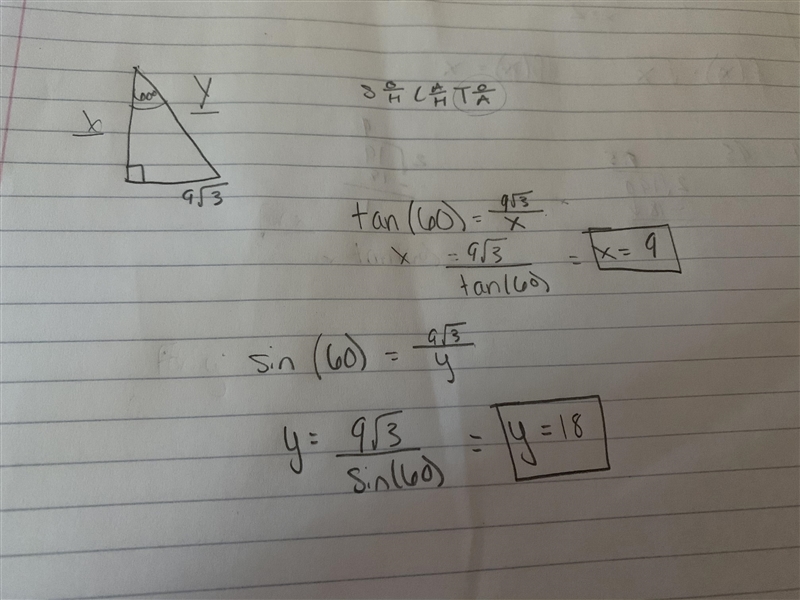 60°
y
x
9√3
S O/H C A/H T O/A
tan(60) = 9√3/x
x = 9√3/tan(60) = x = 9
sin (60) = 9√3/y
y = 9√3/sin(60) = y = 18